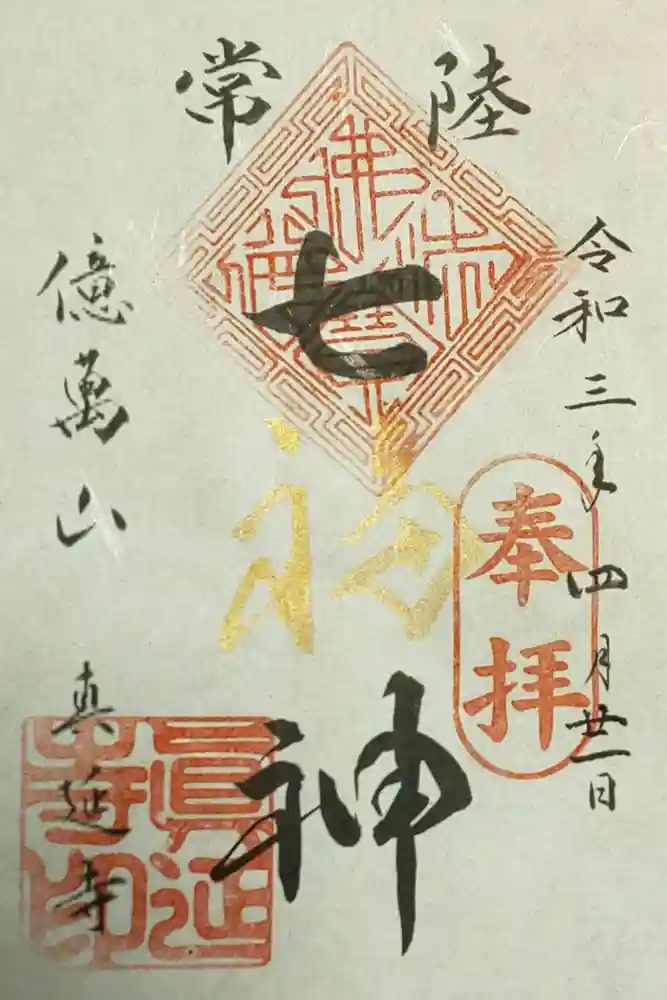 常陸
令和三年四月廿一日
奉拝
七福神
億萬山 真延寺
眞延寺印